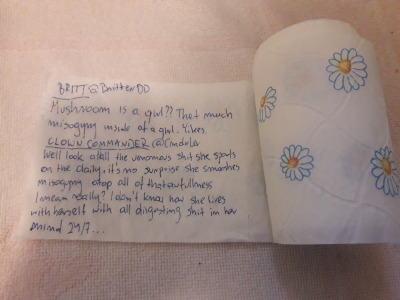 BRITT @BritterDD
Mushroom is a gurl?? That much
misogyny inside of a gurl. Yikes.
CLOWN COMMANDER @Cindeler
Well look at all the venomous shit she spouts
on the daily, it's no surprise she smashes
misogyny atop all of that awfullness
I mean really? I don't know how she lives
with herself with all disgesting shit in her
mind 24/7...